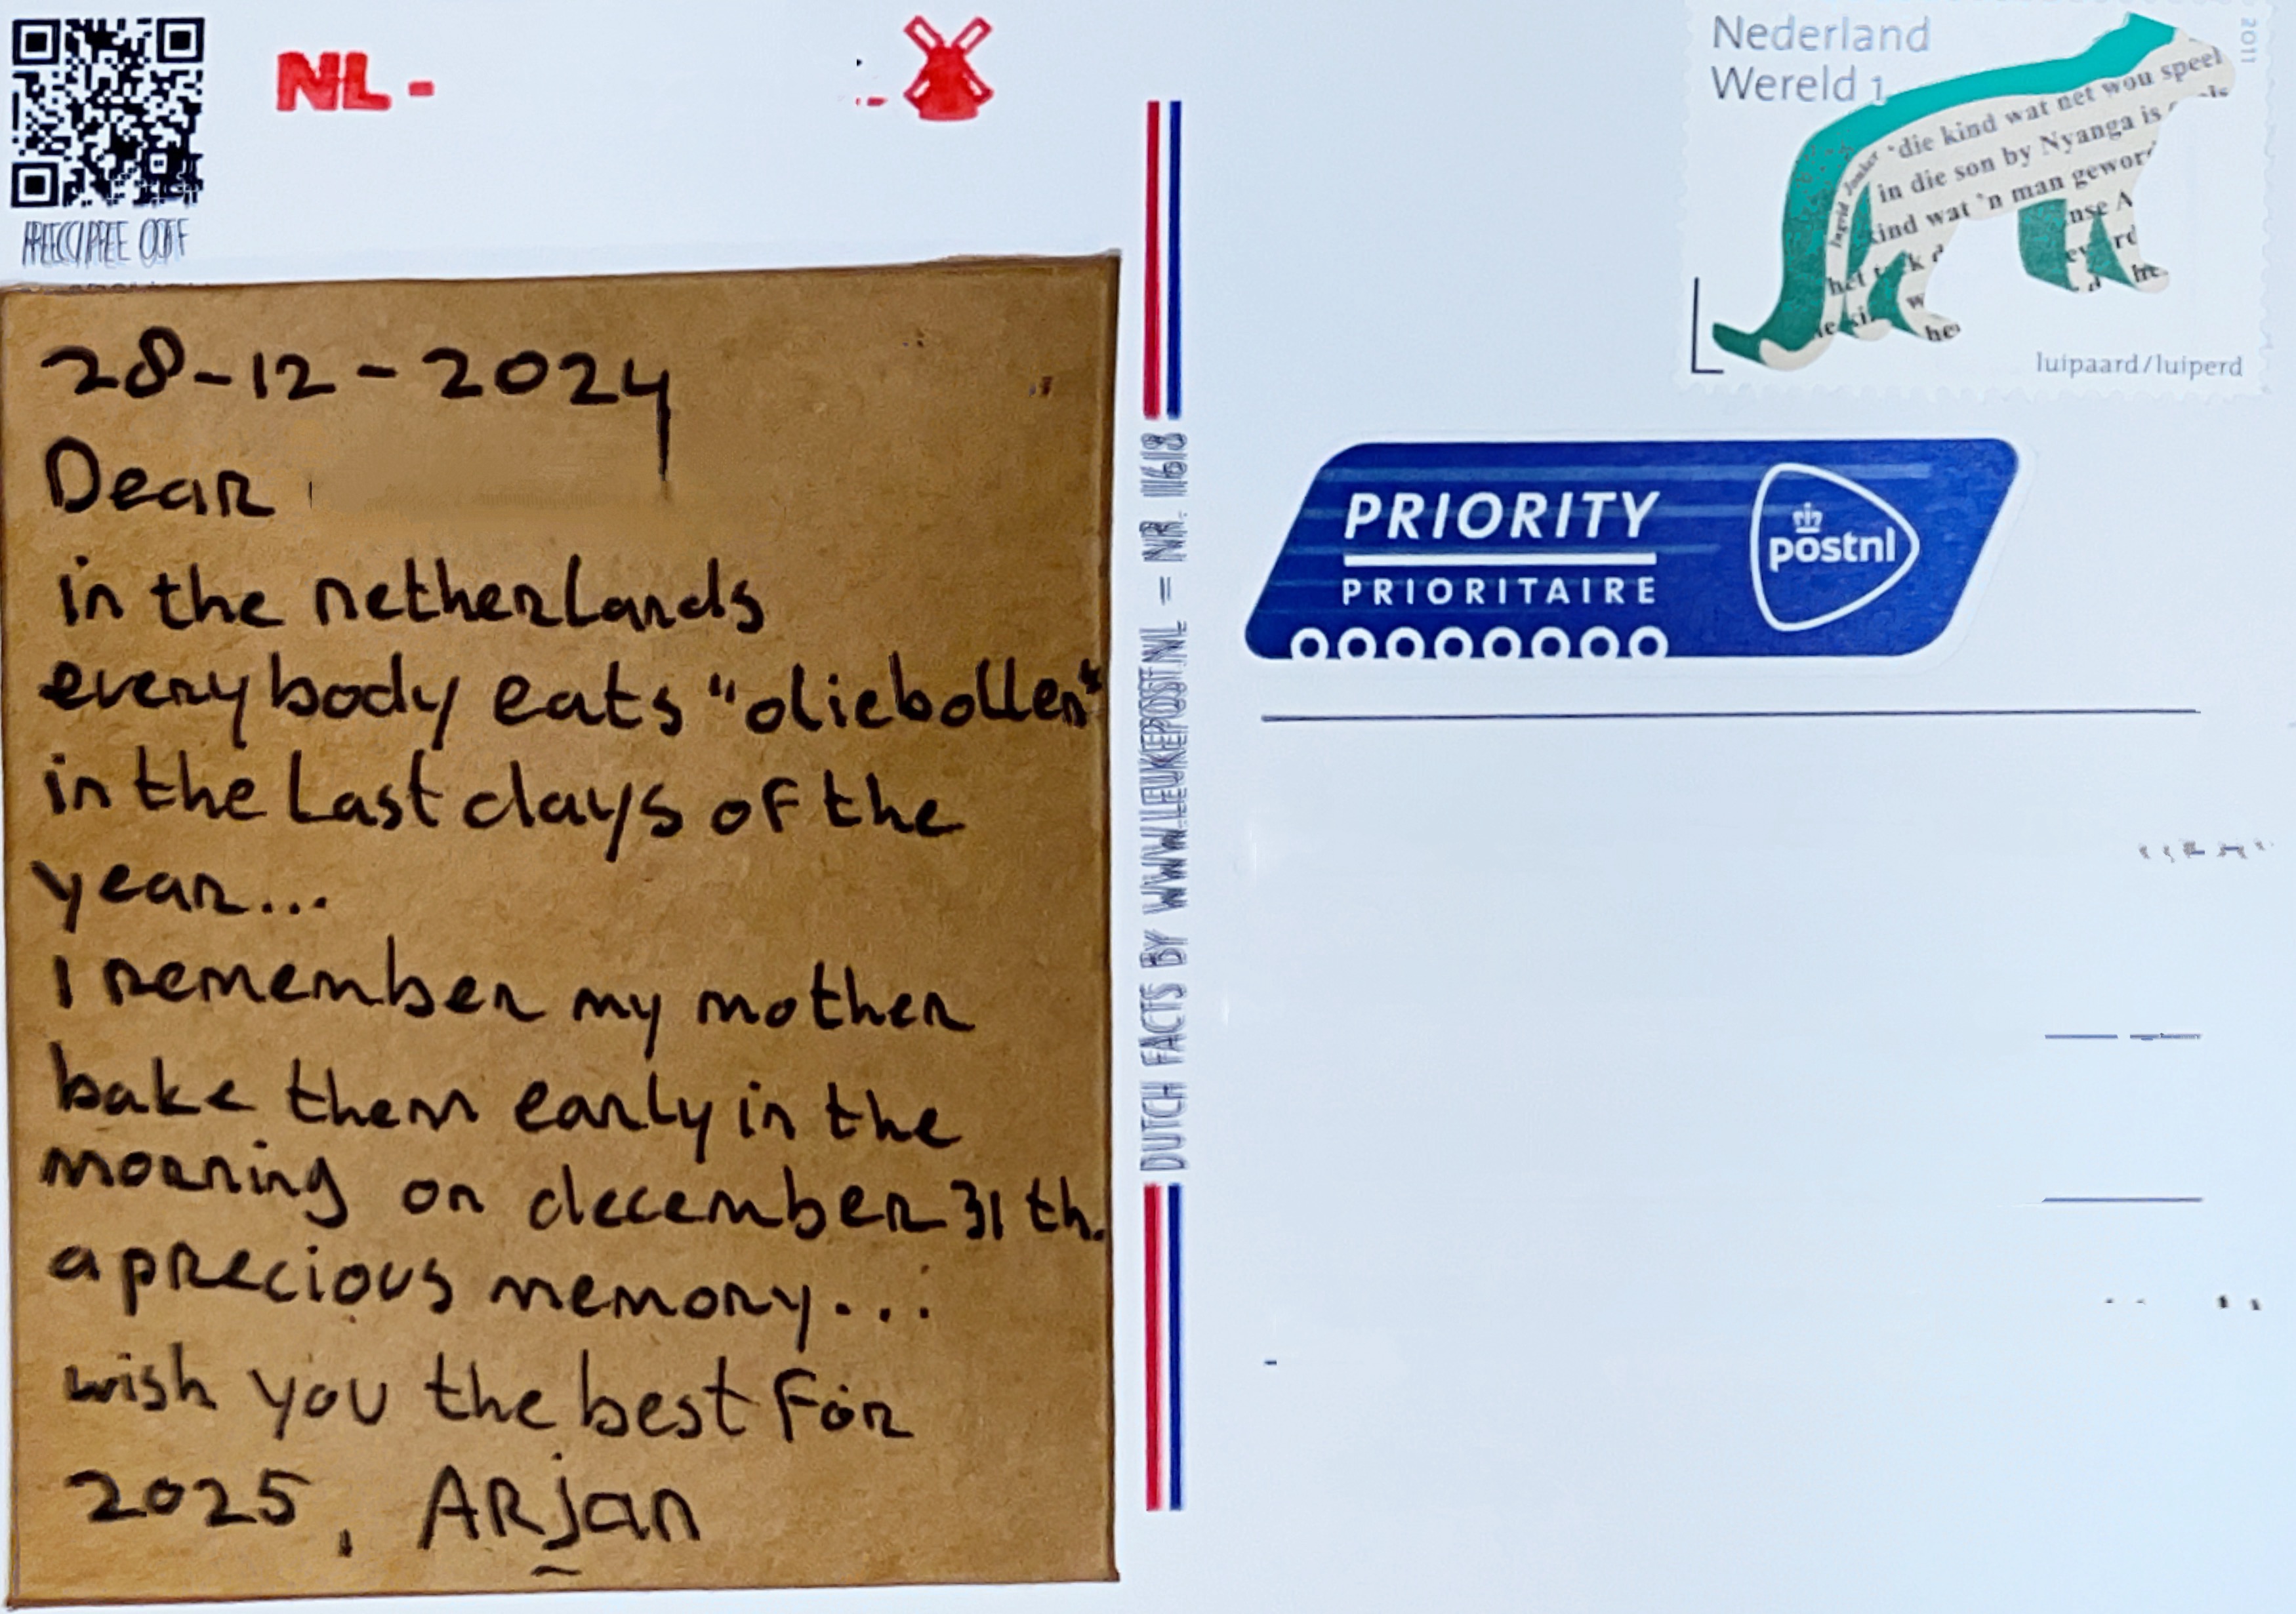 NL-
28-12-2024
Dear
in the netherlands
everybody eats "oliebollen"
in the last days of the
year...
I remember my mother
bake them early in the
morning on december 31 th.
a precious memory...
wish you the best for
2025, ARjan
DUTCH FACTS BY WWW.LEUKEPOST.NL – NR. 11618
Nederland
Wereld 1
2011
Ingrid Jonker
'die kind wat net wou speel
in die son by Nyanga is
kind wat 'n man geword
nse A
het
luipaard/luiperd
PRIORITY
PRIORITAIRE
postnl